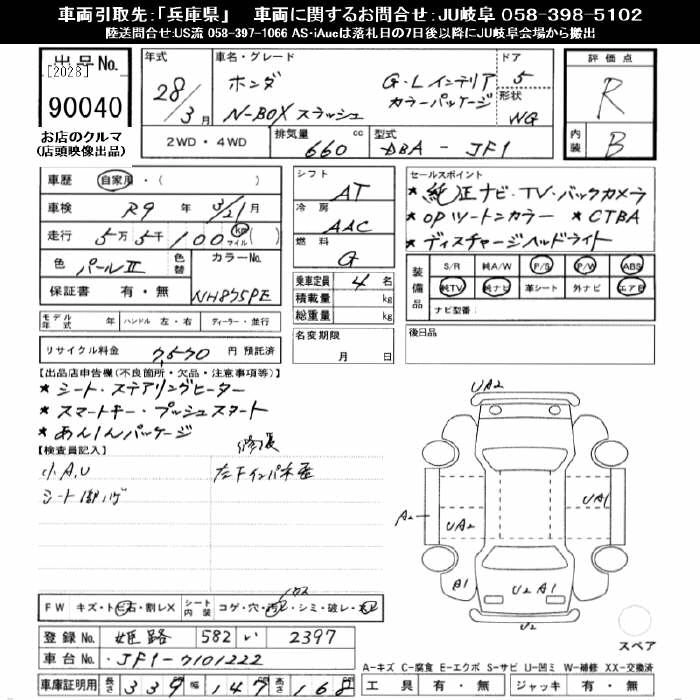 車両引取先:「兵庫県」 車両に関するお問合せ:JU岐阜 058-398-5102
陸送問合せ:US流 058-397-1066 AS-iAucは落札日の7日後以降にJU岐阜会場から搬出
出品No.
[2028]
90040
お店のクルマ
(店頭映像出品)
年式 28/3月
車名・グレード ホンダ G・Lインテリア
N-BOXスラッシュ カラーパッケージ
ドア 5
形状 WG
2WD・4WD
排気量 660 cc
型式 DBA - JF1
評価点 R
内装 B
車歴 自家用・( )
車検 R9年 3/21月
走行 5万5千100 km マイル ( )
色 パールⅡ 色替 カラーNo. NH875PE
保証書 有・無
シフト AT
冷房 AAC
燃料 G
乗車定員 4名
積載量 kg
総重量 kg
名変期限 月 日
セールスポイント
★純正ナビ・TV・バックカメラ
★OPツートンカラー ★CTBA
★ディスチャージヘッドライト
装備品 S/R 純A/W P/S P/W ABS
純TV 純ナビ 革シート 外ナビ エアB
ナビ型番:
後日品
モデル年式 年 ハンドル 左・右 ディーラー・並行
リサイクル料金 7,570 円 預託済
【出品店申告欄(不良箇所・欠品・注意事項等)】
★シート・ステアリングヒーター
★スマートキー・プッシュスタート
★あんしんパッケージ
【検査員記入】
小A,U
左下インパネ
FW キズ・トビ石・割レX シート内装 コゲ・穴・汚レ・シミ・破レ・
登録No. 姫路 582 い 2397
車台No. JF1-7101222
車庫証明用 長さ 339 幅 147 高さ 168
UA2
A2
UA2
UA1
A1
U2 A1
U2
スペア
A-キズ C-腐食 E-エクボ S-サビ U-凹ミ W-補修 XX-交換済
工具 有・無 ジャッキ 有・無